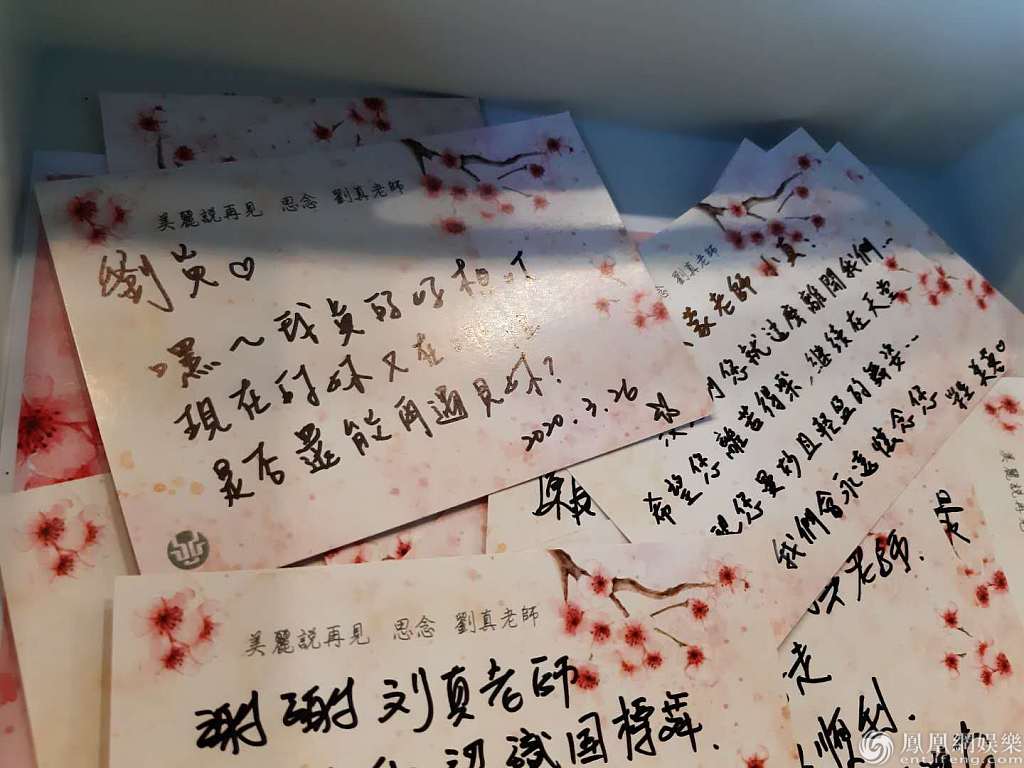 美麗說再見 思念 劉真老師
劉真♡
嘿～我真的好想
現在的妳又在
是否還能再遇見妳?
2020.3.26
念 劉真老師
老師 小真:
您就這麼離開我們...
希望您離苦得樂,繼續在天堂
您曼妙且輕盈的舞姿...
我們會永遠懷念您
美麗說再見 思念 劉真老師
謝謝刘真老師
認識國標舞.
老師.
走
順利.
美麗說再見
鳳凰網娛樂
ent.ifeng.com